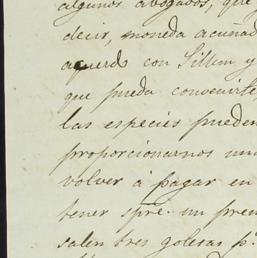 algunos abogados, que
decir, moneda acuñad
acuerdo con Sillem y
que pueda convenirle
las especies pueden
proporcionarnos un
volver á pagar en
tener spre. un prem
salen tres goletas pª.